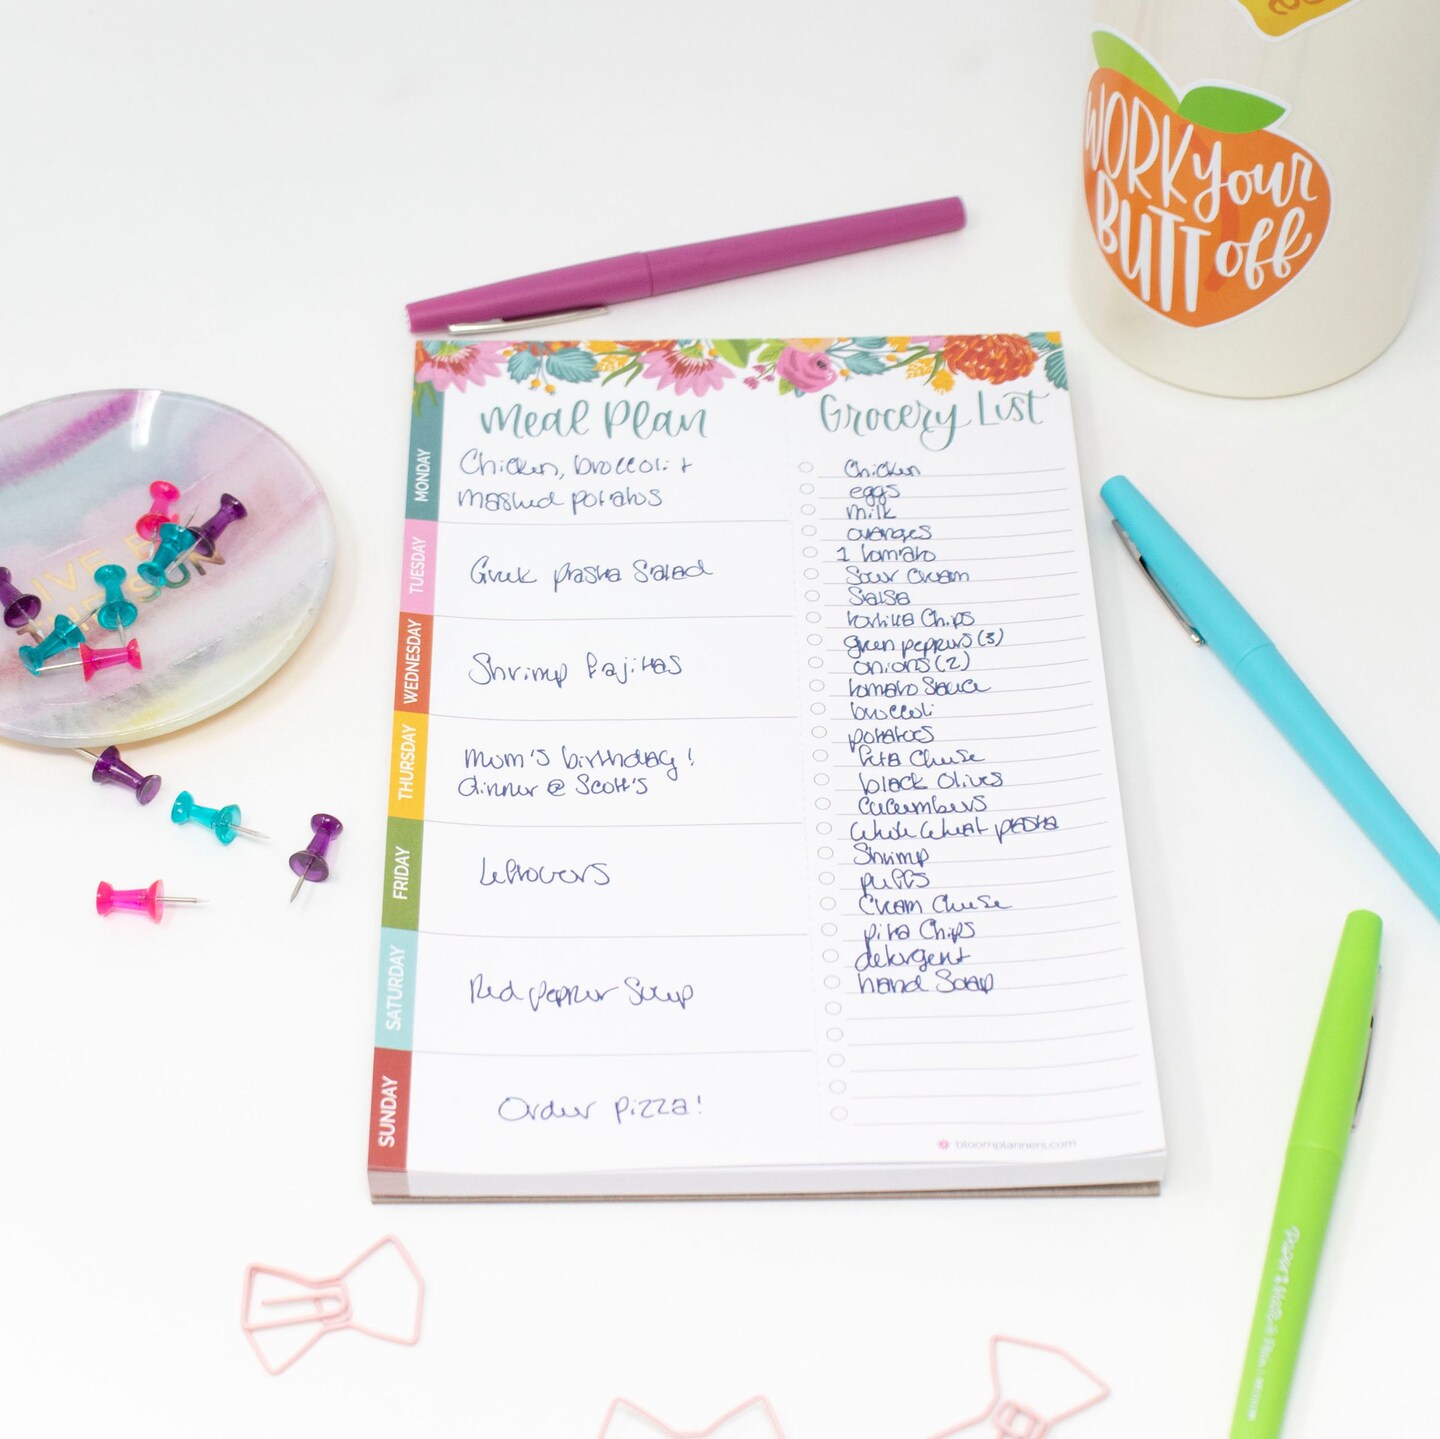 WORK your
BUTT off
LIVE BY
THE SUN
Meal Plan
MONDAY
Chicken, broccoli +
mashed potatoes
TUESDAY
Greek pasta Salad
WEDNESDAY
Shrimp fajitas
THURSDAY
Mom's birthday!
dinner @ Scott's
FRIDAY
Leftovers
SATURDAY
Red pepper Soup
SUNDAY
Order pizza!
Grocery List
Chicken
eggs
milk
oranges
1 tomato
Sour Cream
Salsa
tortilla Chips
green peppers (3)
onions (2)
tomato Sauce
broccoli
potatoes
feta Cheese
black Olives
Cucumbers
whole wheat pasta
Shrimp
puffs
Cream Cheese
pita Chips
detergent
hand Soap
bloomplanners.com
Paper Mate® Flair